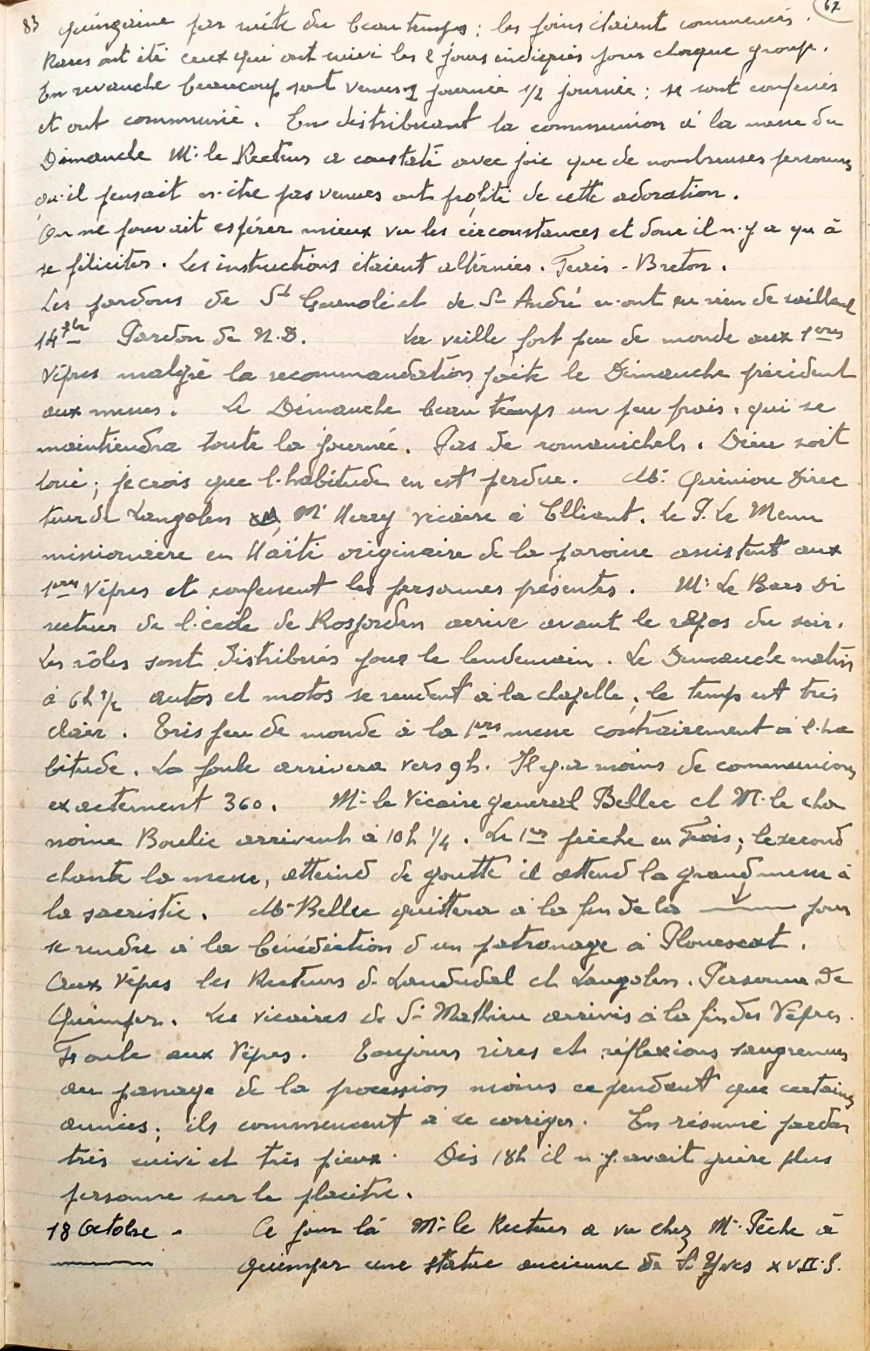 83 quinzaine par suite du beau temps ; les foins étaient commencés. 67
Rares ont été ceux qui ont suivi les 2 jours indiqués pour chaque groupe.
En revanche beaucoup sont venus 1 journée 1/2 journée ; se sont confessés
et ont communié. En distribuant la communion à la messe du
Dimanche Mr le Recteur a constaté avec joie que de nombreuses personnes
qu'il pensait n'être pas venues ont profité de cette adoration.
On ne pouvait espérer mieux vu les circonstances et donc il n'y a qu'à
se féliciter. Les instructions étaient alternées. Frais - Breton.
Les pardons de St Guenolé et de St André n'ont eu rien de saillant
14 7bre Pardon de N.D. La veille fort peu de monde aux 1ères
Vêpres malgré la recommandation faite le Dimanche précédent
aux messes. Le Dimanche beau temps un peu frais, qui se
maintiendra toute la journée. Pas de romanichels. Dieu soit
loué ; je crois que l'habitude en est perdue. Mr Quiniou Direc
teur de Langolen Mr Herry vicaire à Elliant, le P. Le Menn
missionnaire en Haïti originaire de la paroisse assistent aux
1ères Vêpres et confessent les personnes présentes. Mr Le Baes Di
recteur de l'école de Rosporden arrive avant le repas du soir.
Les rôles sont distribués pour le lendemain. Le Dimanche matin
à 6h 1/2 autos et motos se rendent à la chapelle ; le temps est très
clair. Très peu de monde à la 1ère messe contrairement à l'ha
bitude. La foule arrivera vers 9h. Il y a moins de communions
exactement 360. Mr le Vicaire général Bellec et Mr le cha
noine Boulic arrivent à 10h 1/4. Le 1er prêche en Frais ; le second
chante la messe, atteint de goutte il attend la grand messe à
la sacristie. Mr Bellec quittera à la fin de la pour
se rendre à la bénédiction d'un patronage à Plouescat.
Aux Vêpres les Recteurs de Landudal et Langolen. Personne de
Quimper. Les vicaires de St Mathieu arrivés à la fin des Vêpres.
Foule aux Vêpres. Toujours rires et réflexions saugrenues
au passage de la procession moins cependant que certaines
années ; ils commencent à se corriger. En résumé pardon
très suivi et très pieux. Dès 18h il n'y avait guère plus
personne sur le placitre.
18 Octobre - Ce jour là Mr le Recteur a vu chez Mr Pêche à
Quimper une statue ancienne de St Yves XVII.S.